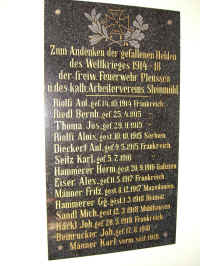 Zum Andenken der gefallenen Helden
des Weltkrieges 1914-18
der freiw. Feuerwehr Pleussen
u. des kath. Arbeitervereins Steinmühl
Riedl Bernh. gef. 25.4.1915
Thoma Jos. gef. 29.11.1915
Dieckert Aul. gef. 9.5.1915 Frankreich
Seitz Karl. gef. 5.7.1916
Hammerer Herm. gest. 20.9.1916 Galizien
Eiser Alex. gef. 11.5.1917 Frankreich
Männer Fritz. gest. 8.12.1917 Mazedonien.
Hammerer Gg. gef.
Sandl Mich. gest. 12.3.1918 Mühlhausen
Häckl Joh. gef. 20.5.1918 Frankreich.
Beurucker Joh. gef. 17.6.1918
Männer Karl verm. seit 1918.